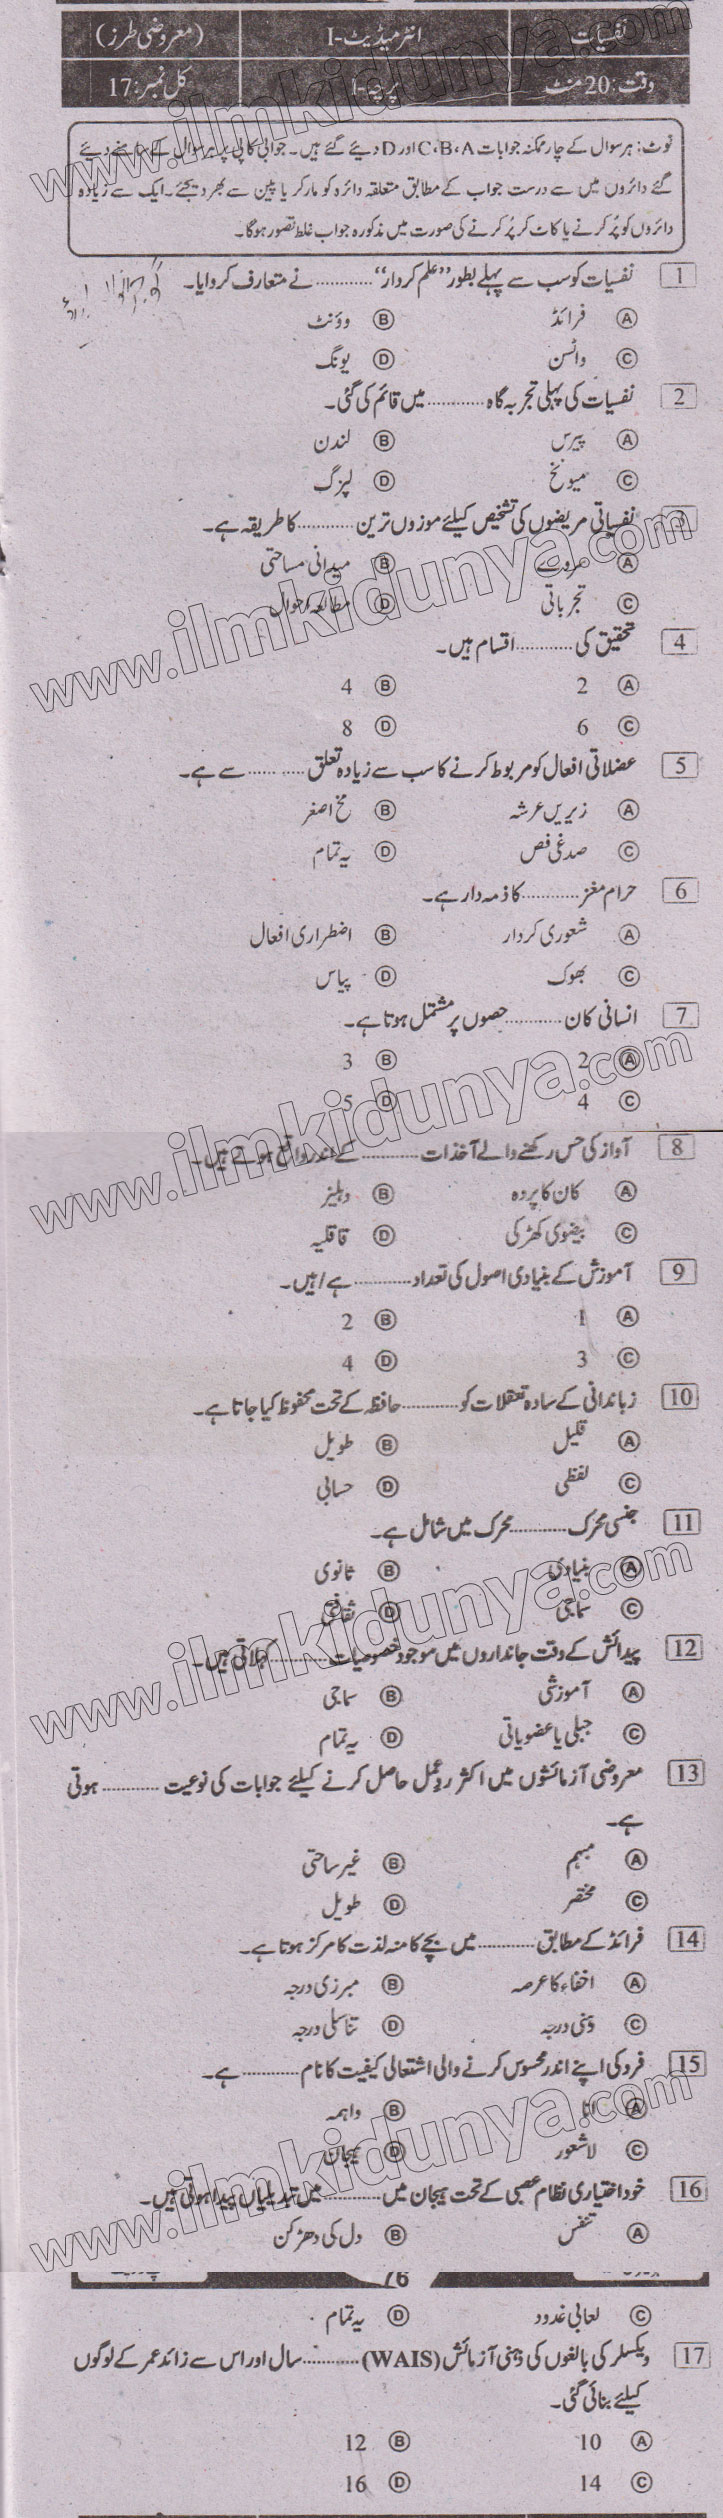 نفسیات انٹرمیڈیٹ-I (معروضی طرز)
وقت: 20 منٹ پرچہ-I کل نمبر: 17
نوٹ: ہر سوال کے چار ممکنہ جوابات C، B، A اور D دیے گئے ہیں۔ جوابی کاپی پر ہر سوال کے سامنے دیے
گئے دائروں میں سے درست جواب کے مطابق متعلقہ دائرہ کو مارکر یا پین سے بھر دیجئے۔ ایک سے زیادہ
دائروں کو پُر کرنے یا کاٹ کر پُر کرنے کی صورت میں مذکورہ جواب غلط تصور ہوگا۔
1 نفسیات کو سب سے پہلے بطور ”علم کردار“ ............ نے متعارف کروایا۔
A فرائڈ B ووُنٹ
C واٹسن D یونگ
2 نفسیات کی پہلی تجربہ گاہ ............ میں قائم کی گئی۔
A پیرس B لندن
C میونخ D لپزگ
3 نفسیاتی مریضوں کی تشخیص کیلئے موزوں ترین ............ کا طریقہ ہے۔
A سروے B میدانی مساحتی
C تجرباتی D مطالعہ احوال
4 تحقیق کی ............ اقسام ہیں۔
A 2 B 4
C 6 D 8
5 عضلاتی افعال کو مربوط کرنے کا سب سے زیادہ تعلق ............ سے ہے۔
A زیریں عرشہ B مخ اصغر
C صدغی فص D یہ تمام
6 حرام مغز ............ کا ذمہ دار ہے۔
A شعوری کردار B اضطراری افعال
C بھوک D پیاس
7 انسانی کان ............ حصوں پر مشتمل ہوتا ہے۔
A 2 B 3
C 4 D 5
8 آواز کی حس رکھنے والے آخذات ............ کے اندر واقع ہوتے ہیں۔
A کان کا پردہ B دہلیز
C بیضوی کھڑکی D قاقلیہ
9 آموزش کے بنیادی اصول کی تعداد ............ ہے/ہیں۔
A 1 B 2
C 3 D 4
10 زباندانی کے سادہ تعقلات کو ............ حافظہ کے تحت محفوظ کیا جاتا ہے۔
A قلیل B طویل
C لفظی D حسابی
11 جنسی محرک ............ محرک میں شامل ہے۔
A بنیادی B ثانوی
C سماجی D ثقافتی
12 پیدائش کے وقت جانداروں میں موجود خصوصیات ............ کہلاتی ہیں۔
A آموزشی B سماجی
C جبلی یا عضویاتی D یہ تمام
13 معروضی آزمائشوں میں اکثر ردِعمل حاصل کرنے کیلئے جوابات کی نوعیت ............ ہوتی
ہے۔
A مبہم B غیر ساختی
C مختصر D طویل
14 فرائڈ کے مطابق ............ میں بچے کا منہ لذت کا مرکز ہوتا ہے۔
A اخفاء کا عرصہ B مبرزی درجہ
C دہنی درجہ D تناسلی درجہ
15 فرد کی اپنے اندر محسوس کرنے والی اشتعالی کیفیت کا نام ............ ہے۔
A انا B واہمہ
C لاشعور D ہیجان
16 خود اختیاری نظام عصبی کے تحت ہیجان میں ............ میں تبدیلیاں پیدا ہوتی ہیں۔
A تنفس B دل کی دھڑکن
76
C لعابی غدود D یہ تمام
17 ویکسلر کی بالغوں کی ذہنی آزمائش (WAIS) ............ سال اور اس سے زائد عمر کے لوگوں
کیلئے بنائی گئی۔
A 10 B 12
C 14 D 16
www.ilmkidunya.com
www.ilmkidunya.com
www.ilmkidunya.com
www.ilmkidunya.com
www.ilmkidunya.com